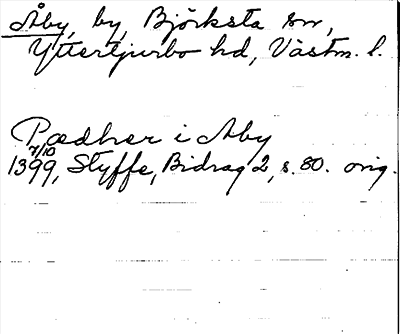 Åby, by, Björksta sn,
Yttertjurbo hd, Västm. l.
Pædher i Aby
7/10
1399, Styffe, Bidrag 2, s. 80. orig.